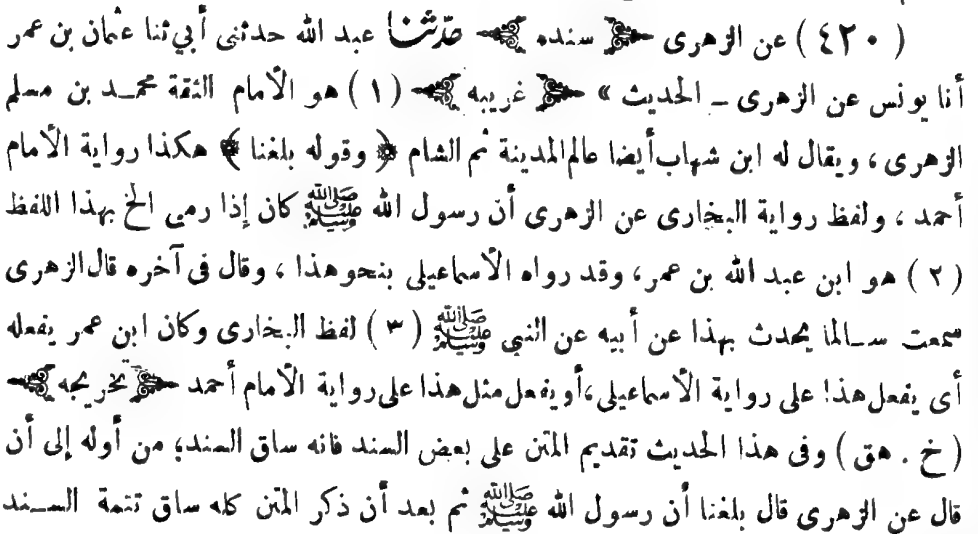 ( ٤٢٠ ) عن الزهرى ﴿ سنده ﴾ حدّثنا عبد الله حدثنى أبي ثنا عثمان بن عمر
أنا يونس عن الزهرى ــ الحديث » ﴿ غريبه ﴾ ( ١ ) هو الأمام الثقة محمــد بن مسلم
الزهرى ، ويقال له ابن شهاب أيضا عالم المدينة ثم الشام ﴿ وقوله بلغنا ﴾ هكذا رواية الأمام
أحمد ، ولفظ رواية البخارى عن الزهرى أن رسول الله ﷺ كان إذا رمى الخ بهذا اللفظ
( ٢ ) هو ابن عبد الله بن عمر، وقد رواه الأسماعيلى بنحو هذا ، وقال فى آخره قال الزهرى
سمعت ســالما يحدث بهذا عن أبيه عن النبى ﷺ ( ٣ ) لفظ البخارى وكان ابن عمر يفعله
أى يفعل هذا على رواية الأسماعيلى ،أو يفعل مثل هذا على رواية الأمام أحمد ﴿ تخريجه ﴾
( خ . هق ) وفى هذا الحديث تقديم المتن على بعض السند فانه ساق السند من أوله إلى أن
قال عن الزهرى قال بلغنا أن رسول الله ﷺ ثم بعد أن ذكر المتن كله ساق تتمة الســند